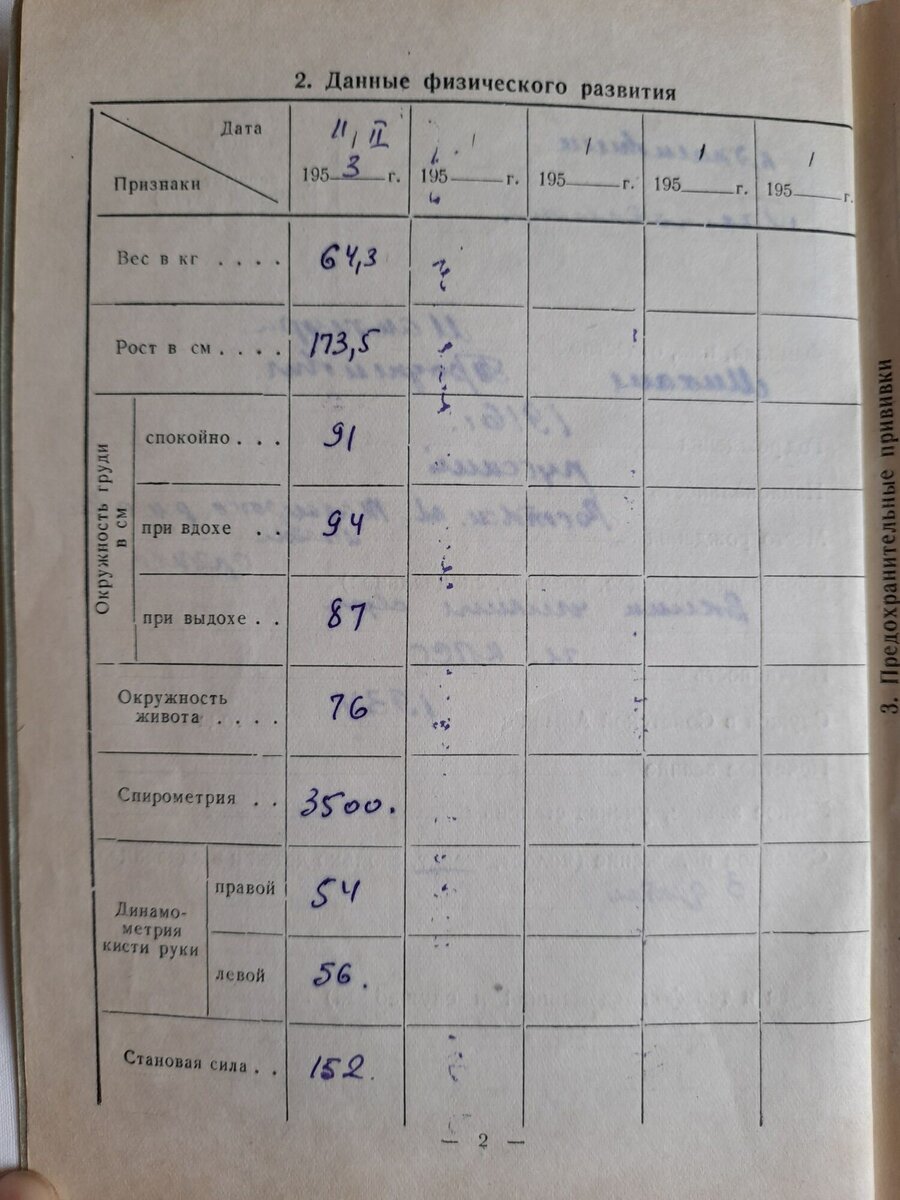 2. Данные физического развития
Дата 11/II / / / /
Признаки 1953 г. 195 г. 195 г. 195 г. 195 г.
Вес в кг .... 64,3
Рост в см .... 173,5
Окружность груди в см
спокойно ... 91
при вдохе .. 94
при выдохе .. 87
Окружность
живота .... 76
Спирометрия .. 3500.
Динамо-
метрия
кисти руки
правой 54
левой 56.
Становая сила .. 152.
— 2 —
3. Предохранительные прививки